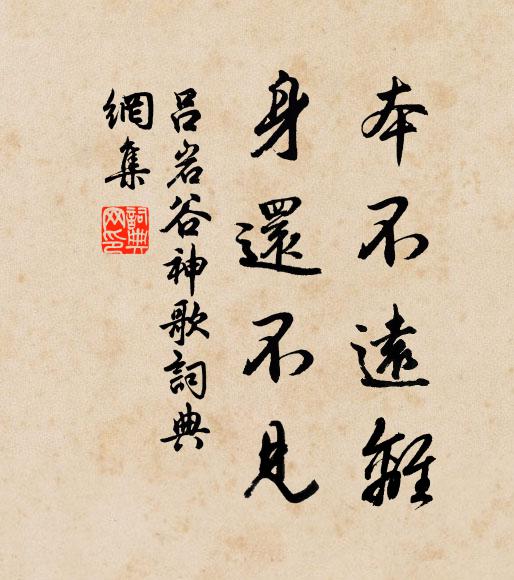 本不遠離
身還不見
呂岩谷神歌詞典
網集
詞典
网印